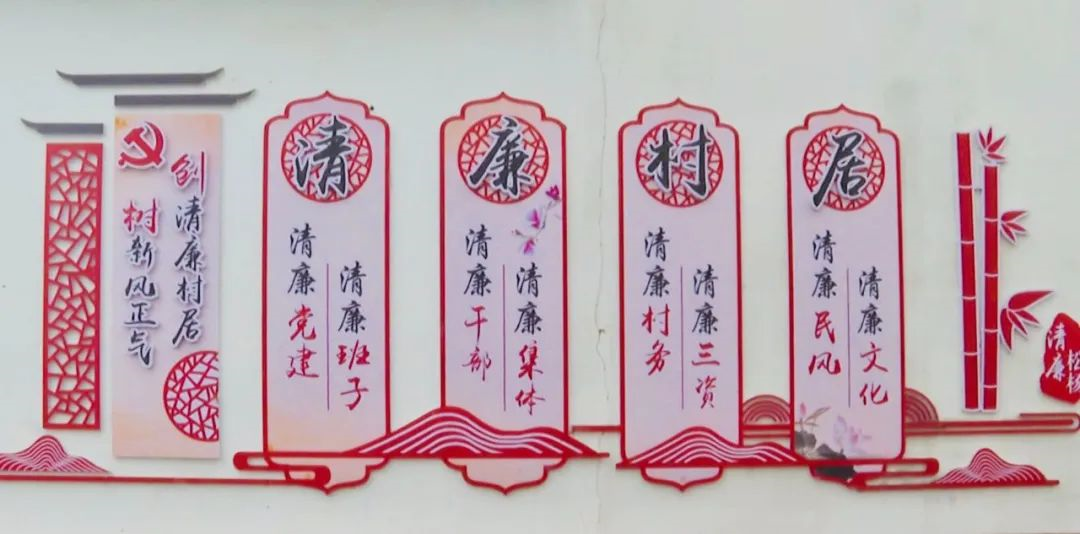 创清廉村居
树新风正气
清
清廉班子
清廉党建
廉
清廉集体
清廉干部
村
清廉三资
清廉村务
居
清廉文化
清廉民风
清廉